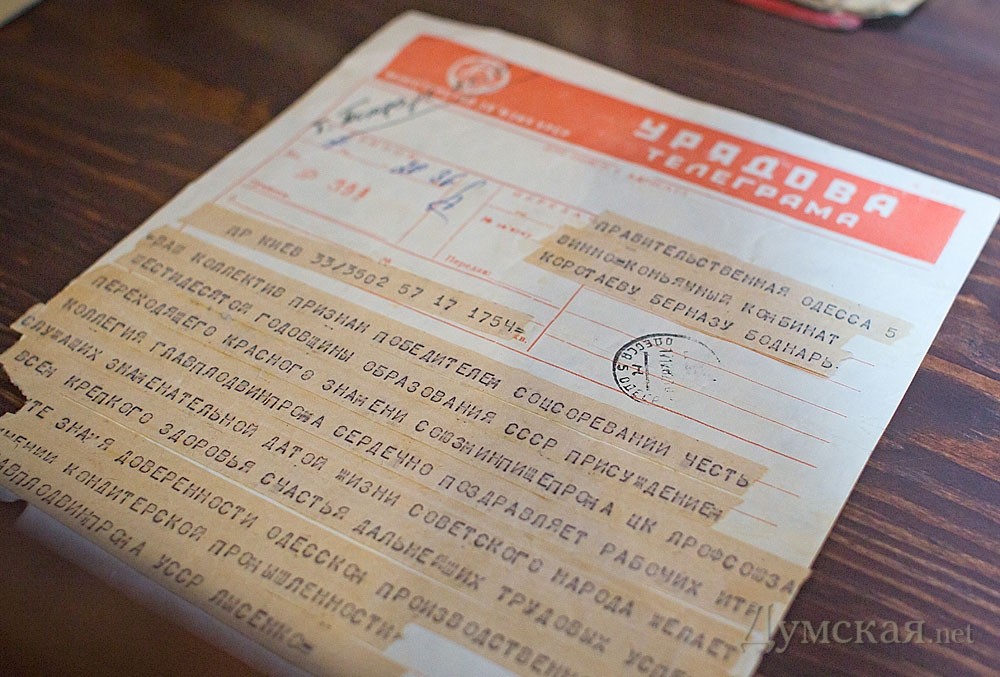 УРАДОВА
ТЕЛЕГРАМА
Р 391
Передав:
ПРАВИТЕЛЬСТВЕННАЯ ОДЕССА 5
ВИННО=КОНЬЯЧНЫЙ КОМБИНАТ
КОРОТАЕВУ БЕРНАЗУ БОДНАРЬ
ПР КИЕВ 33/3502 57 17 1754=
=ВАШ КОЛЛЕКТИВ ПРИЗНАН ПОБЕДИТЕЛЕМ СОЦСОРЕВАНИИ ЧЕСТЬ
ШЕСТИДЕСЯТОЙ ГОДОВЩИНЫ ОБРАЗОВАНИЯ СССР ПРИСУЖДЕНИЕМ
ПЕРЕХОДЯЩЕГО КРАСНОГО ЗНАМЕНИ СОЮЗМИНПИЩЕПРОМА ЦК ПРОФСОЮЗА
КОЛЛЕГИЯ ГЛАВПЛОДВИНПРОМА СЕРДЕЧНО ПОЗДРАВЛЯЕТ РАБОЧИХ ИТР
СЛУЖАЩИХ ЗНАМЕНАТЕЛЬНОЙ ДАТОЙ ЖИЗНИ СОВЕТСКОГО НАРОДА ЖЕЛАЕТ
ВСЕМ КРЕПКОГО ЗДОРОВЬЯ СЧАСТЬЯ ДАЛЬНЕЙШИХ ТРУДОВЫХ
ЗНАМЯ ДОВЕРЕННОСТИ ОДЕССКОМ
КОНДИТЕРСКОЙ ПРОМЫШЛЕННОСТИ
УССР ЛЫСЕНКО=
ОДЕССА 5
Думская.net